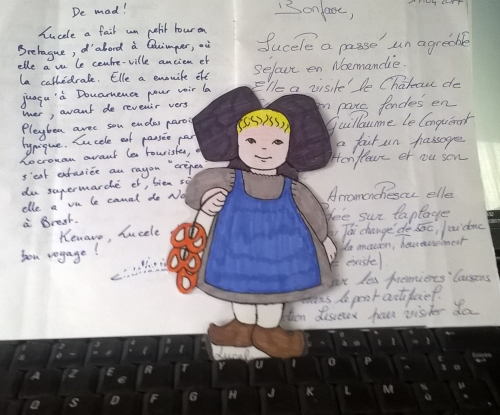 De mad!
Lucele a fait un petit tour en
Bretagne, d'abord à Quimper, où
elle a vu le centre-ville ancien et
la cathédrale. Elle a ensuite été
jusqu'à Douarnenez pour voir la
mer, avant de revenir vers
Pleyben avec son enclos paroi
typique. Lucele est passée par
Locronan avant les touristes,
s'est extasiée au rayon "crêpes
du supermarché et, bien sû
elle a vu le canal de Na
à Brest.
Kenavo, Lucele
bon voyage!
Bonjour,
Lucele a passé un agréable
séjour en Normandie.
Elle a visité le Château de
son parc fondés en
Guillaume le Conquérant
a fait un passage
Honfleur et vu son
Arromanches elle
sur la plage
J'ai changé de sac, j'ai donc
heureusement
existe)
les premiers
dans le port artificiel.
Lisieux pour visiter La
A Z E R T Y U I O P
€
Q S D F G H J K L M